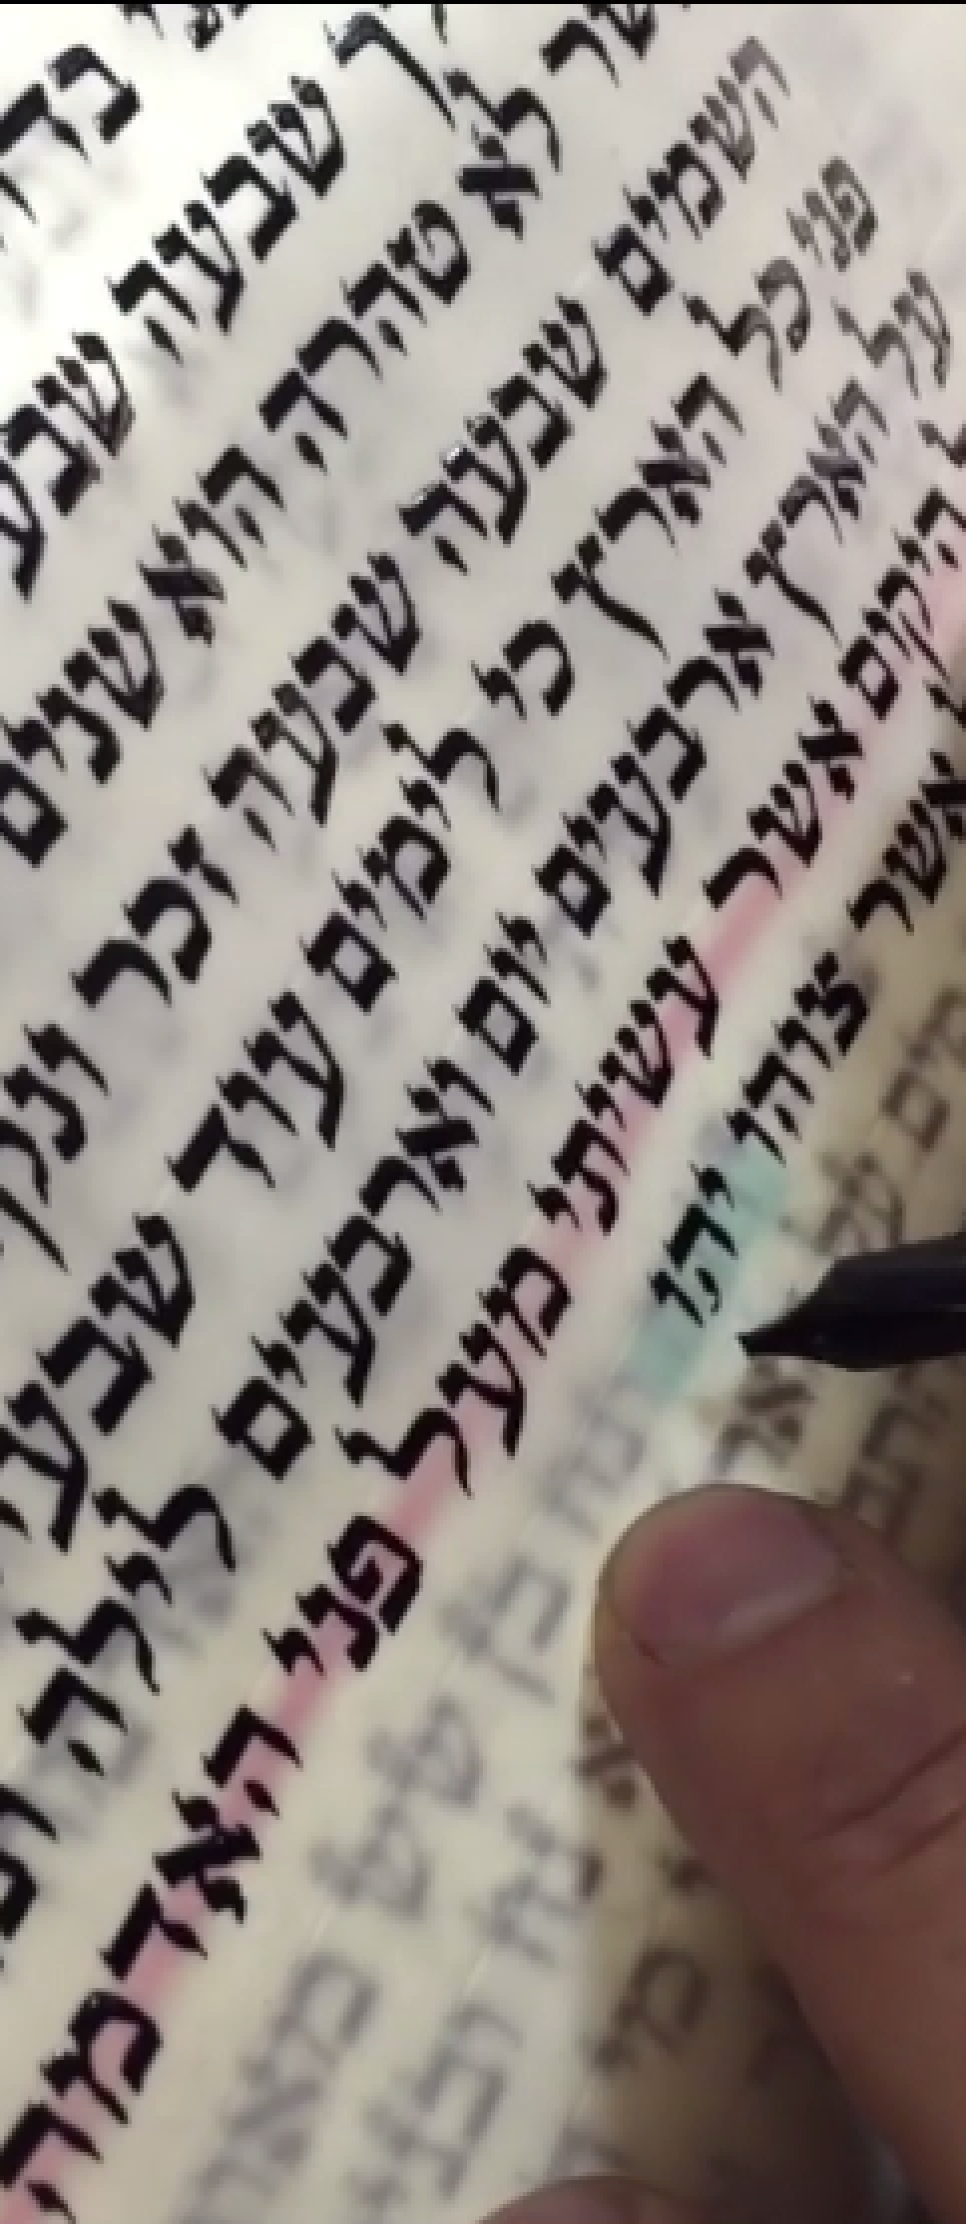 ך שבעה שבע
שר לא טהרה הוא שנים
השמים שבעה שבעה זכר ונק
פני כל הארץ כי לימים עוד שבע
על הארץ ארבעים יום וארבעים לילה
היקום אשר עשיתי מעל פני האדמה
אשר צוהו יהו